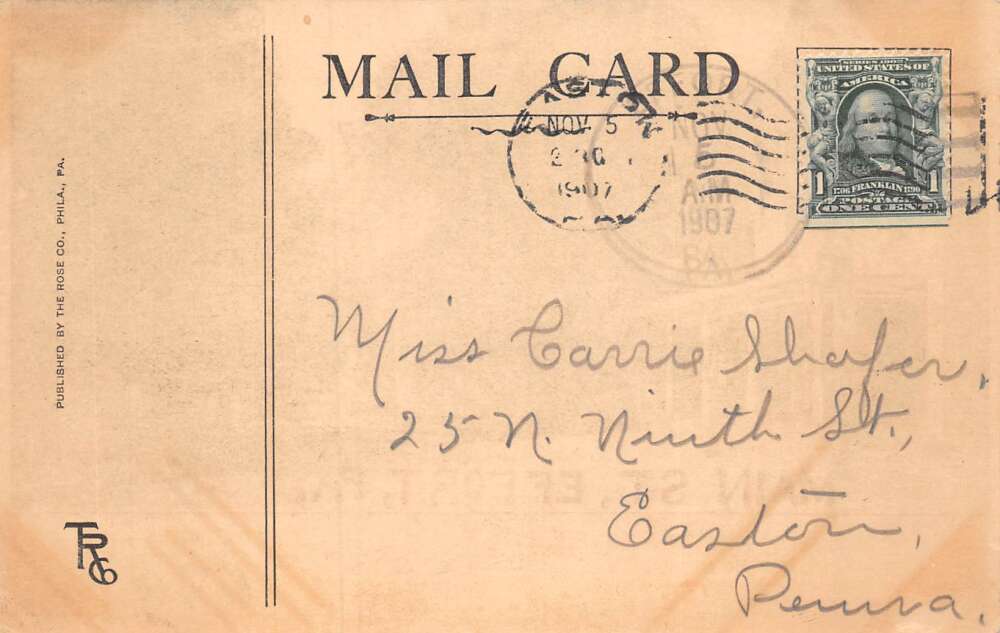 MAIL CARD
SERIES 1902
UNITED STATES OF
AMERICA
1706 FRANKLIN 1790
1 1
POSTAGE
ONE CENT
NOV 5
2 30
1907
NOV
5
AM
1907
PA.
Miss Carrie Shafer,
25 N. Ninth St.,
Easton,
Penna.
PUBLISHED BY THE ROSE CO., PHILA., PA.
TRCo